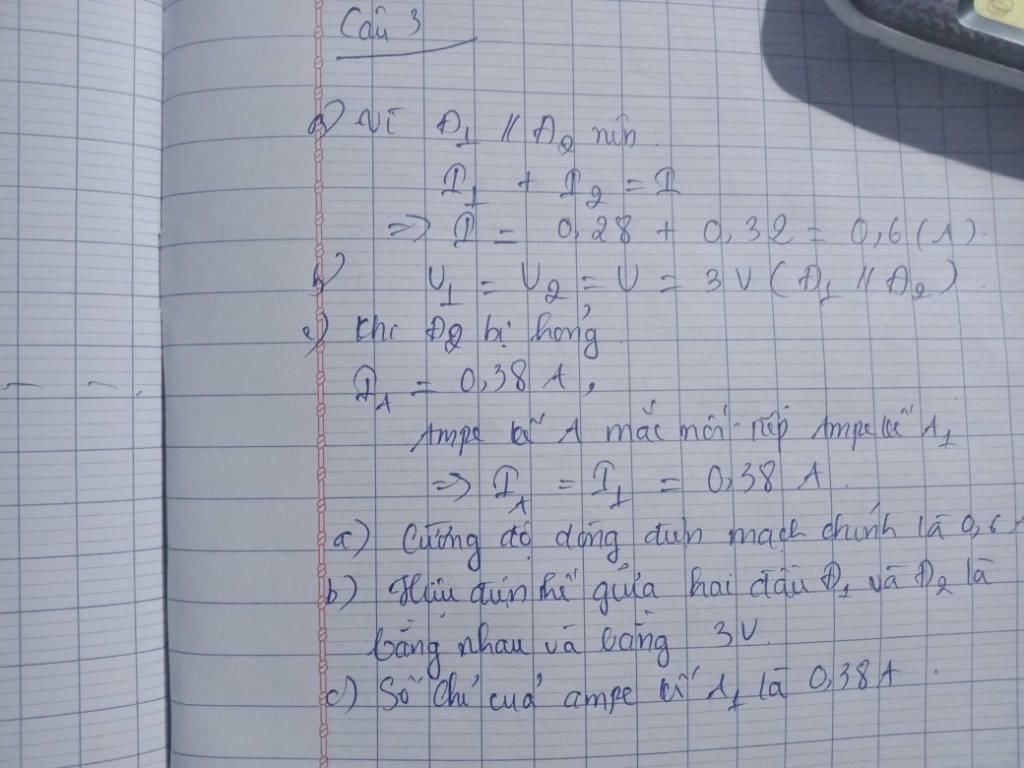 Câu 3
a) Vì Đ1 // Đ2 nên
I1 + I2 = I
=> I = 0,28 + 0,32 = 0,6 (A).
b) U1 = U2 = U = 3V (Đ1 // Đ2)
c) Khi Đ2 bị hỏng
IA = 0,38 A,
Ampe kế A mắc nối tiếp Ampe kế A1
=> IA = I1 = 0,38 A.
a) Cường độ dòng điện mạch chính là 0,6
b) Hiệu điện thế giữa hai đầu Đ1 và Đ2 là
bằng nhau và bằng 3V.
c) Số chỉ của ampe kế A1 là 0,38A.